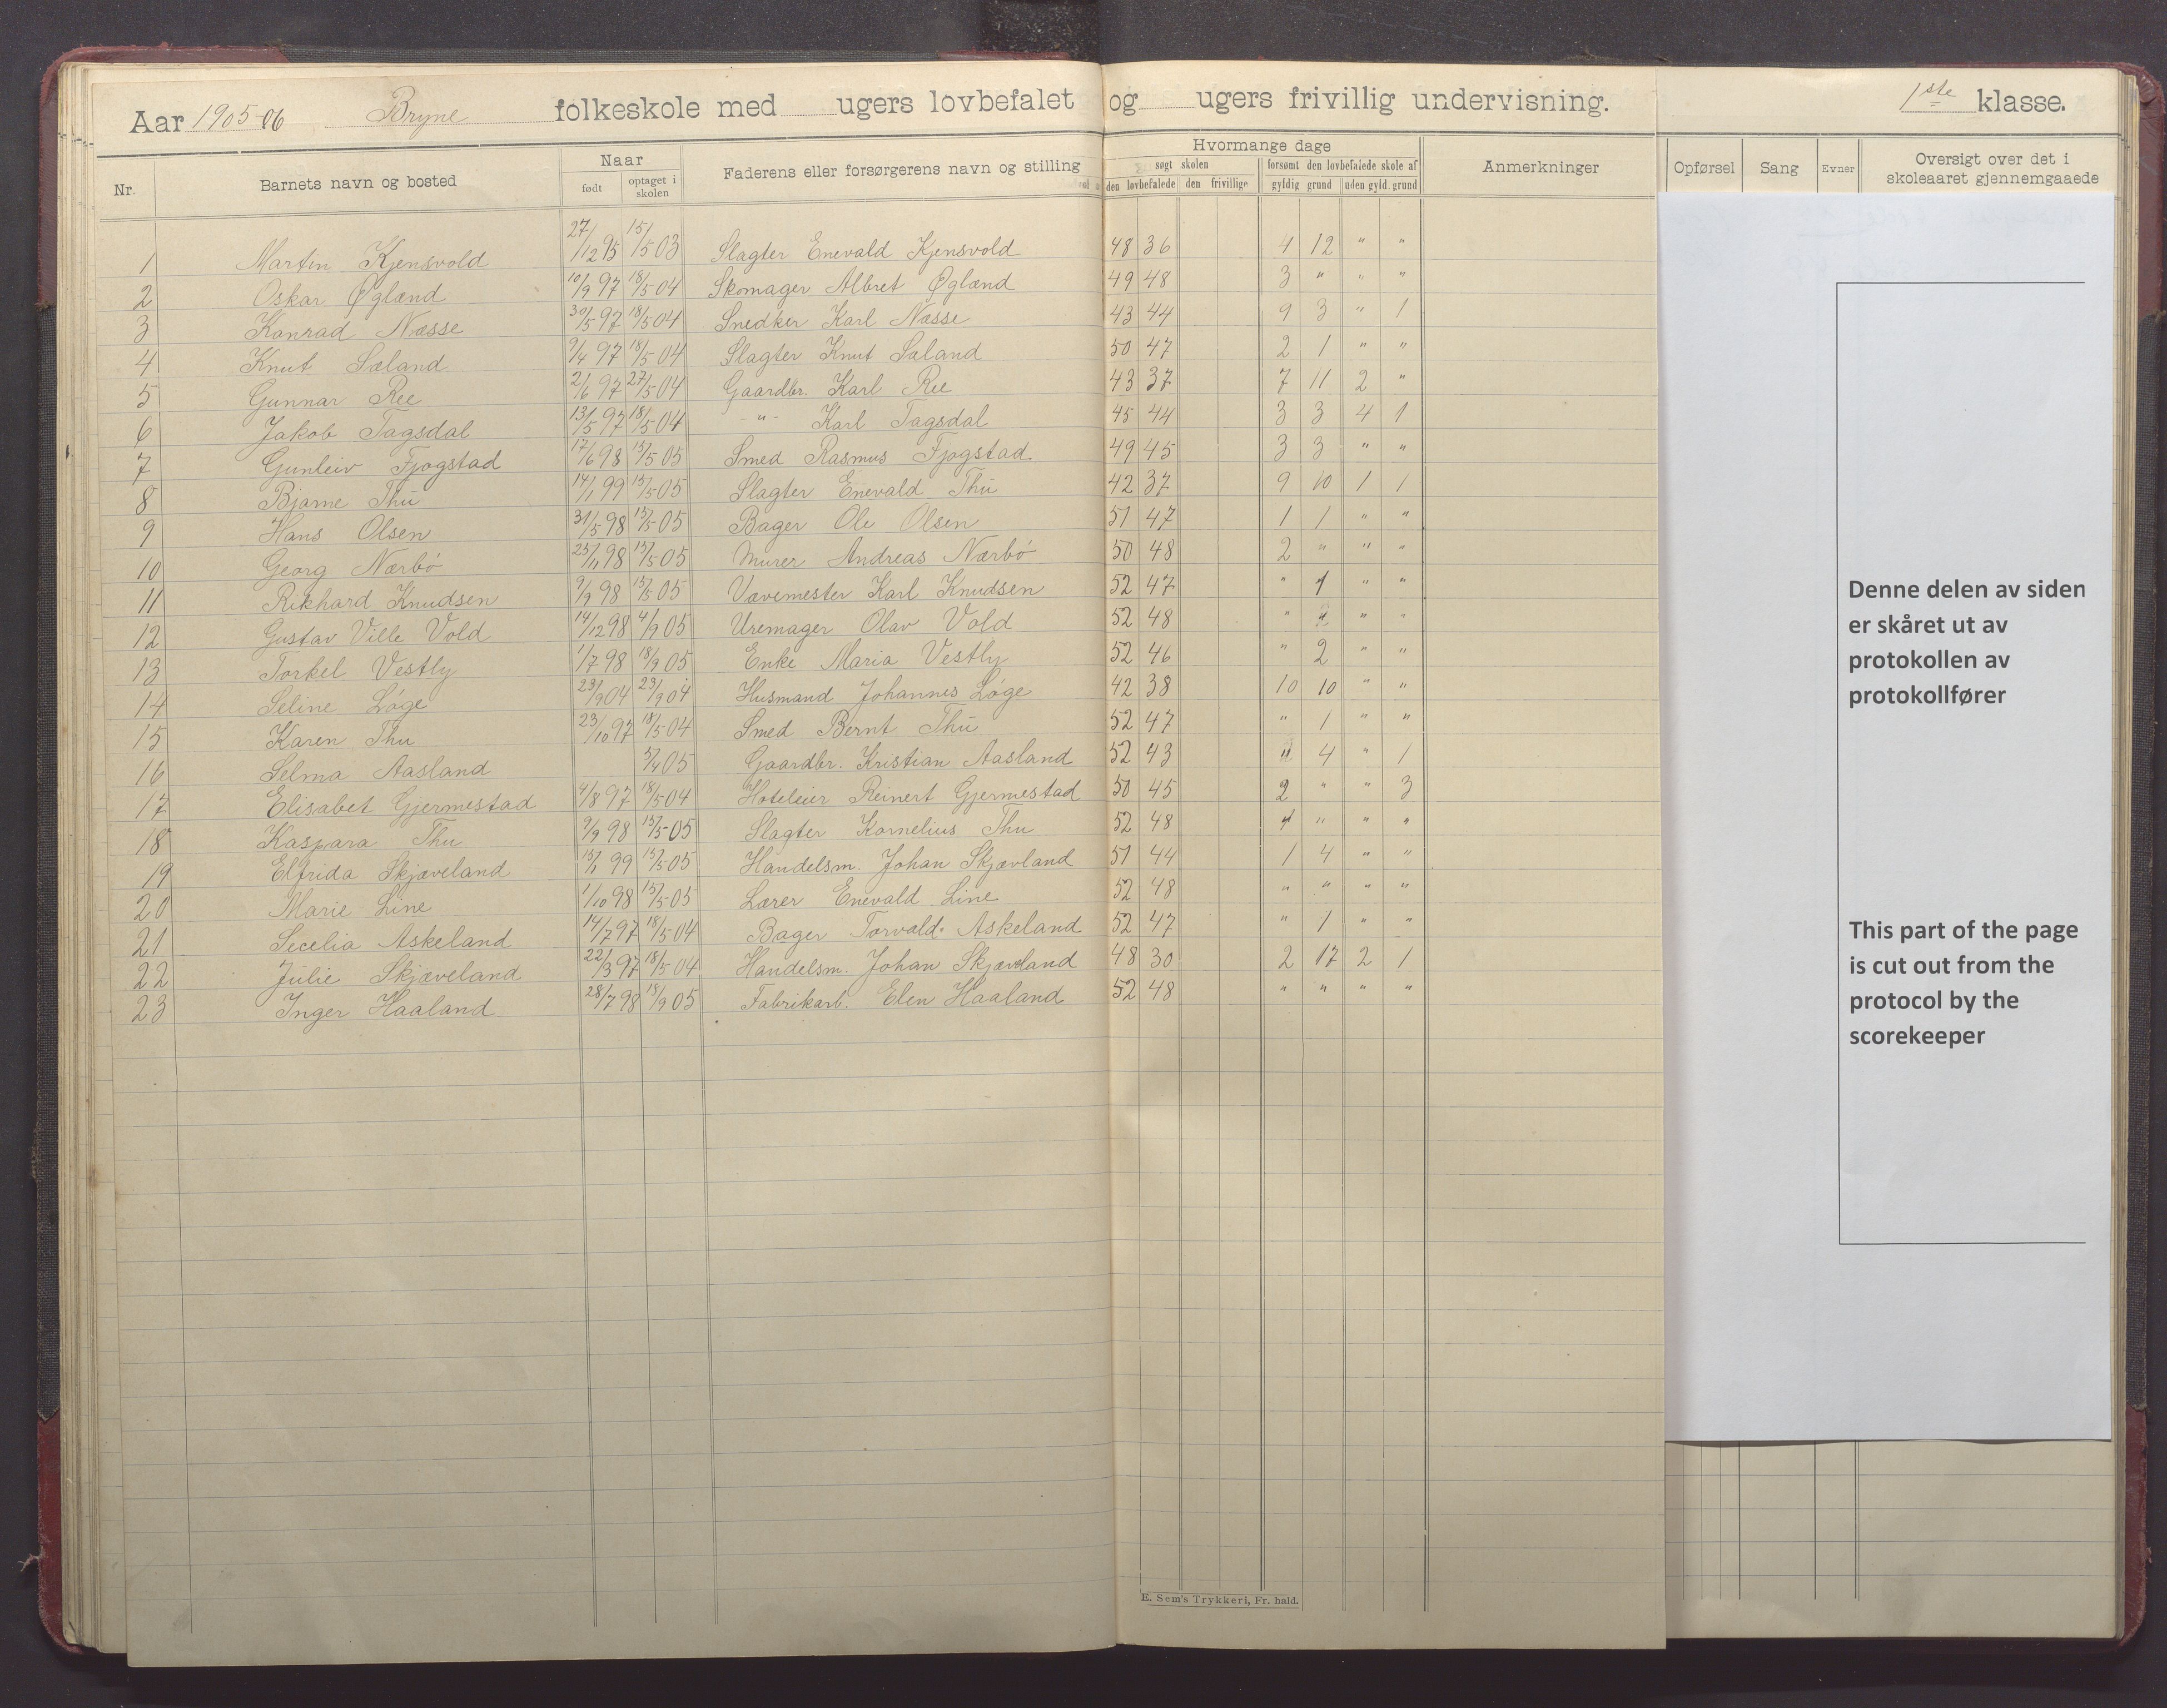 Aar 1905-06 Bryne folkeskole med ugers lovbefalet og ugers frivillig undervisning. 1ste klasse.
Nr. Barnets navn og bosted Naar født optaget i skolen Faderens eller forsørgerens navn og stilling Hvormange dage søgt skolen den lovbefalede den frivillige forsømt den lovbefalede skole af gyldig grund uden gyld. grund Anmerkninger Opførsel Sang Evner Oversigt over det i skoleaaret gjennemgaaede
1 Martin Kjensvold 27/12 95 15/5 03 Slagter Enevald Kjensvold 48 36 4 12 " "
2 Oskar Øglænd 10/9 97 18/5 04 Skomager Albret Øglænd 49 48 3 " " "
3 Konrad Næsse 30/5 97 18/5 04 Snedker Karl Næsse 43 44 9 3 " 1
4 Knut Sæland 9/4 97 18/5 04 Slagter Knut Sæland 50 47 2 1 " "
5 Gunnar Ree 2/6 97 27/5 04 Gaardbr. Karl Ree 43 37 7 11 2 "
6 Jakob Tagsdal 13/5 97 18/5 04 -"- Karl Tagsdal 45 44 3 3 4 1
7 Gunleiv Fjogstad 17/6 98 15/5 05 Smed Rasmus Fjogstad 49 45 3 3 " "
8 Bjarne Thu 14/1 99 15/5 05 Slagter Enevald Thu 42 37 9 10 1 1
9 Hans Olsen 31/5 98 15/5 05 Bager Ole Olsen 51 47 1 1 " "
10 Georg Nærbö 25/11 98 15/5 05 Murer Andreas Nærbö 50 48 2 " " "
11 Rikhard Knudsen 9/9 98 15/5 05 Vævemester Karl Knudsen 52 47 " 1 " "
12 Gustav Ville Vold 14/12 98 4/9 05 Uremager Olav Vold 52 48 " " "
13 Torkel Vestly 1/7 98 18/9 05 Enke Maria Vestly 52 46 " 2 " "
14 Seline Löge 23/9 04 23/9 04 Husmand Johannes Löge 42 38 10 10 " "
15 Karen Thu 23/10 97 18/5 04 Smed Bernt Thu 52 47 " 1 " "
16 Selma Aasland 5/4 05 Gaardbr. Kristian Aasland 52 43 " 4 " 1
17 Elisabet Gjermestad 4/8 97 18/5 04 Hoteleier Reinert Gjermestad 50 45 2 " " 3
18 Kaspara Thu 9/9 98 15/5 05 Slagter Kornelius Thu 52 48 " " "
19 Elfrida Skjæveland 15/1 99 15/5 05 Handelsm. Johan Skjævland 51 44 1 4 " "
20 Marie Line 1/10 98 15/5 05 Lærer Enevald Line 52 48 " " " "
21 Secelia Askeland 14/7 97 18/5 04 Bager Torvald Askeland 52 47 " 1 " "
22 Julie Skjæveland 22/3 97 18/5 04 Handelsm. Johan Skjæveland 48 30 2 17 2 1
23 Inger Haaland 28/7 98 18/9 05 Fabrikarb. Elen Haaland 52 48 " " " "
E. Sem's Trykkeri, Fr. hald.
Denne delen av siden
er skåret ut av
protokollen av
protokollfører
This part of the page
is cut out from the
protocol by the
scorekeeper